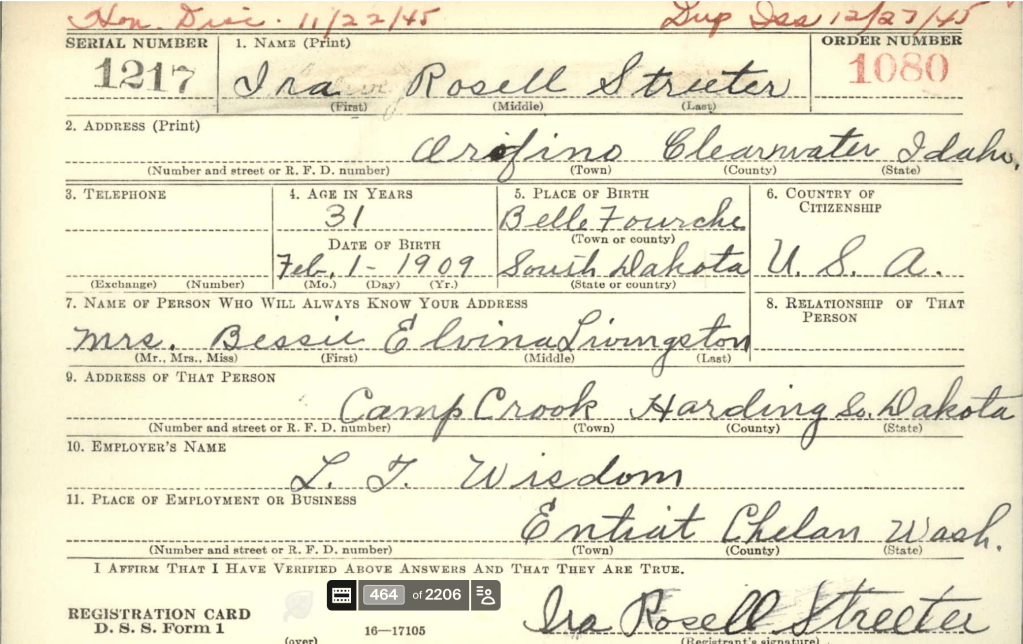 Hon. Disc. 11/22/45 Dup Iss 12/27/45
SERIAL NUMBER 1. NAME (Print) ORDER NUMBER
1217 Ira Rosell Streeter 1080
(First) (Middle) (Last)
2. ADDRESS (Print)
Orofino Clearwater Idaho.
(Number and street or R. F. D. number) (Town) (County) (State)
3. TELEPHONE 4. AGE IN YEARS 5. PLACE OF BIRTH 6. COUNTRY OF
CITIZENSHIP
31 Belle Fourche
(Town or county)
DATE OF BIRTH
Feb. 1- 1909 South Dakota U. S. A.
(Exchange) (Number) (Mo.) (Day) (Yr.) (State or country)
7. NAME OF PERSON WHO WILL ALWAYS KNOW YOUR ADDRESS 8. RELATIONSHIP OF THAT
PERSON
Mrs. Bessie Elvina Livingston
(Mr., Mrs., Miss) (First) (Middle) (Last)
9. ADDRESS OF THAT PERSON
Camp Crook Harding So. Dakota
(Number and street or R. F. D. number) (Town) (County) (State)
10. EMPLOYER'S NAME
L. T. Wisdom
11. PLACE OF EMPLOYMENT OR BUSINESS
Entiat Chelan Wash.
(Number and street or R. F. D. number) (Town) (County) (State)
I AFFIRM THAT I HAVE VERIFIED ABOVE ANSWERS AND THAT THEY ARE TRUE.
464 of 2206
REGISTRATION CARD Ira Rosell Streeter
D. S. S. Form 1 16—17105
(over) (Registrant's signature)